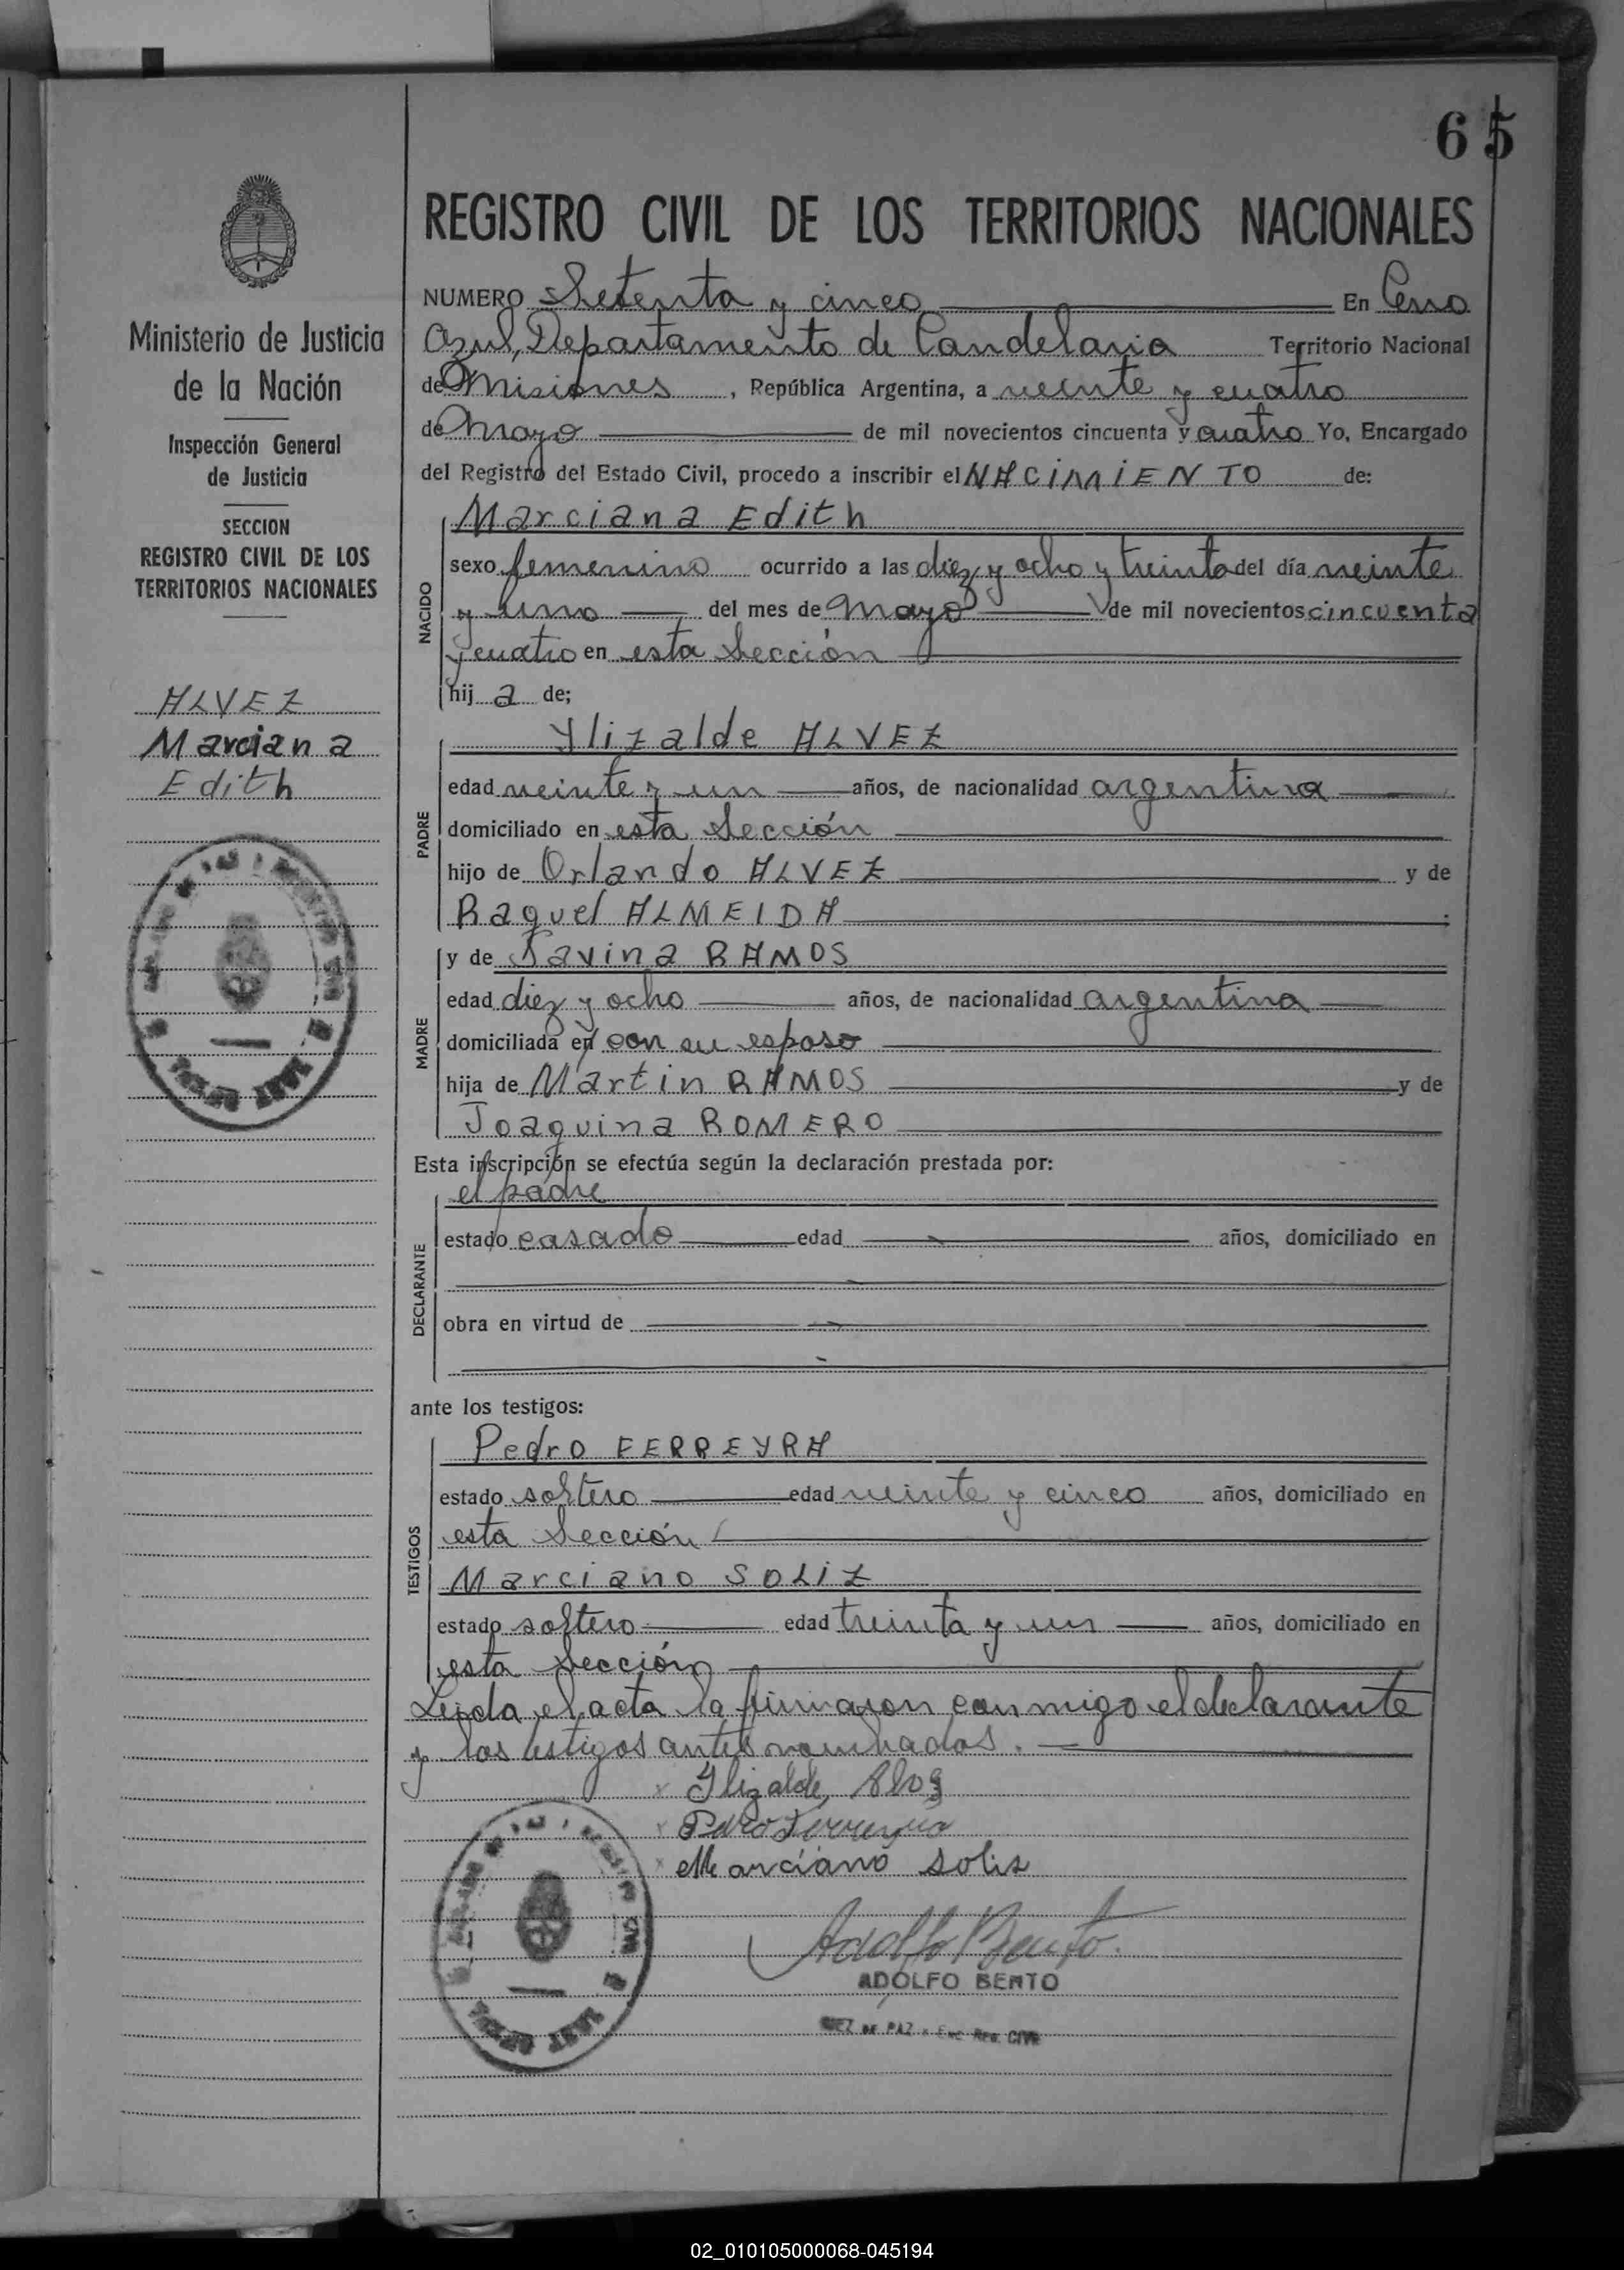 65
REGISTRO CIVIL DE LOS TERRITORIOS NACIONALES
Ministerio de Justicia
de la Nación
Inspección General
de Justicia
SECCION
REGISTRO CIVIL DE LOS
TERRITORIOS NACIONALES
ALVEZ
Marciana
Edith
NUMERO Setenta y cinco En Cerro
Azul, Departamento de Candelaria Territorio Nacional
de Misiones, República Argentina, a veinte y cuatro
de Mayo de mil novecientos cincuenta y cuatro Yo, Encargado
del Registro del Estado Civil, procedo a inscribir el NACIMIENTO de:
NACIDO
Marciana Edith
sexo femenino ocurrido a las diez y ocho y treinta del día veinte
y uno del mes de Mayo de mil novecientos cincuenta
y cuatro en esta Sección
hij a de;
PADRE
Ylizalde ALVEZ
edad veinte y un años, de nacionalidad argentina
domiciliado en esta Sección
hijo de Orlando ALVEZ y de
Raquel ALMEIDA ;
MADRE
y de Savina RAMOS
edad diez y ocho años, de nacionalidad argentina
domiciliada en con su esposo
hija de Martin RAMOS y de
Joaquina ROMERO
Esta inscripción se efectúa según la declaración prestada por:
DECLARANTE
el padre
estado casado edad años, domiciliado en
obra en virtud de
ante los testigos:
TESTIGOS
Pedro FERREYRA
estado soltero edad veinte y cinco años, domiciliado en
esta Sección
Marciano SOLIZ
estado soltero edad treinta y un años, domiciliado en
esta Sección
Leida el acta la firmaron conmigo el declarante
y los testigos antes nombrados.
x Ylizalde, Alvez
x Pedro Ferreyra
x Marciano Solis
Adolfo Bento.
ADOLFO BENTO
JUEZ DE PAZ y Enc. Reg. CIVIL
02_010105000068-045194